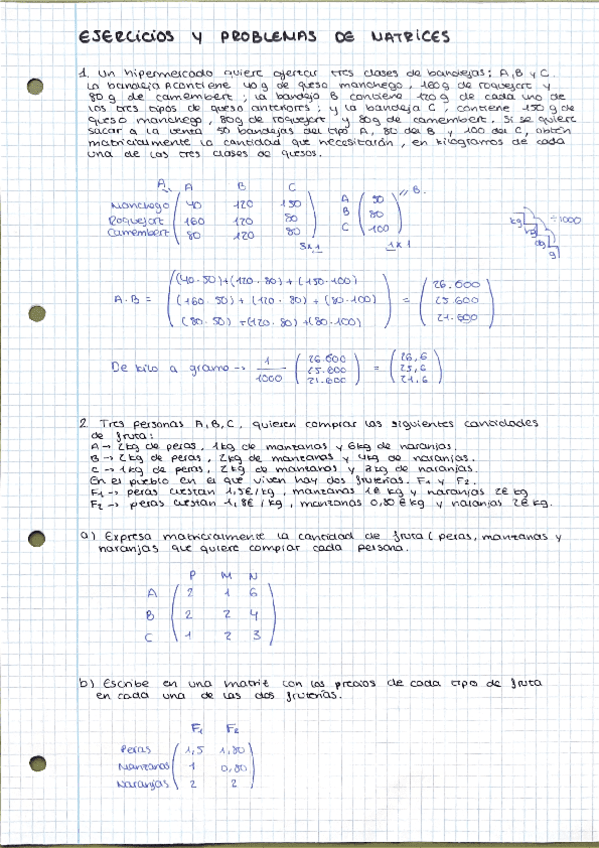 EJERCICIOS Y PROBLEMAS DE MATRICES
1. Un hipermercado quiere ofertar tres clases de bandejas: A, B y C.
La bandeja A contiene 40 g de queso manchego, 160 g de roquefort y
80 g de camembert; la bandeja B contiene 120 g de cada uno de
los tres tipos de queso anteriores; y la bandeja C, contiene 150 g de
queso manchego, 80g de roquefort y 80g de camembert. Si se quiere
sacar a la venta 50 bandejas del tipo A, 80 del B y 100 del C, obtén
matricialmente la cantidad que necesitarán, en kilogramos de cada
una de las tres clases de quesos.
A B C
Manchego 40 120 150
Roquefort 160 120 80
Camembert 80 120 80
3x1
A 50
B 80
C 100
1x1
" B.
kg hg dg g ÷1000
A · B = (40 · 50)+(120 · 80) + (150 · 100) = 26.600
(160 · 50) + (120 · 80) + (80 · 100) 25.600
(80 · 50) + (120 · 80) + (80 · 100) 21.600
De kilo a gramo → 1/1000 26.600 = 26,6
25.600 25,6
21.600 21,6
2. Tres personas A, B, C, quieren comprar las siguientes cantidades
de fruta:
A → 2kg de peras, 1kg de manzanas y 6kg de naranjas.
B → 2kg de peras, 2kg de manzanas y 4kg de naranjas.
C → 1kg de peras, 2kg de manzanas y 3kg de naranjas.
En el pueblo en el que viven hay dos fruterías. F1 y F2.
F1 → peras cuestan 1,5€/kg, manzanas 1€ kg y naranjas 2€ kg
F2 → peras cuestan 1,8€/kg, manzanas 0,80 € kg y naranjas 2€ kg.
a) Expresa matricialmente la cantidad de fruta (peras, manzanas y
naranjas que quiere comprar cada persona.
P M N
A 2 1 6
B 2 2 4
C 1 2 3
b) Escribe en una matriz con los precios de cada tipo de fruta
en cada una de las dos fruterías.
F1 F2
Peras 1,5 1,80
Manzanas 1 0,80
Naranjas 2 2